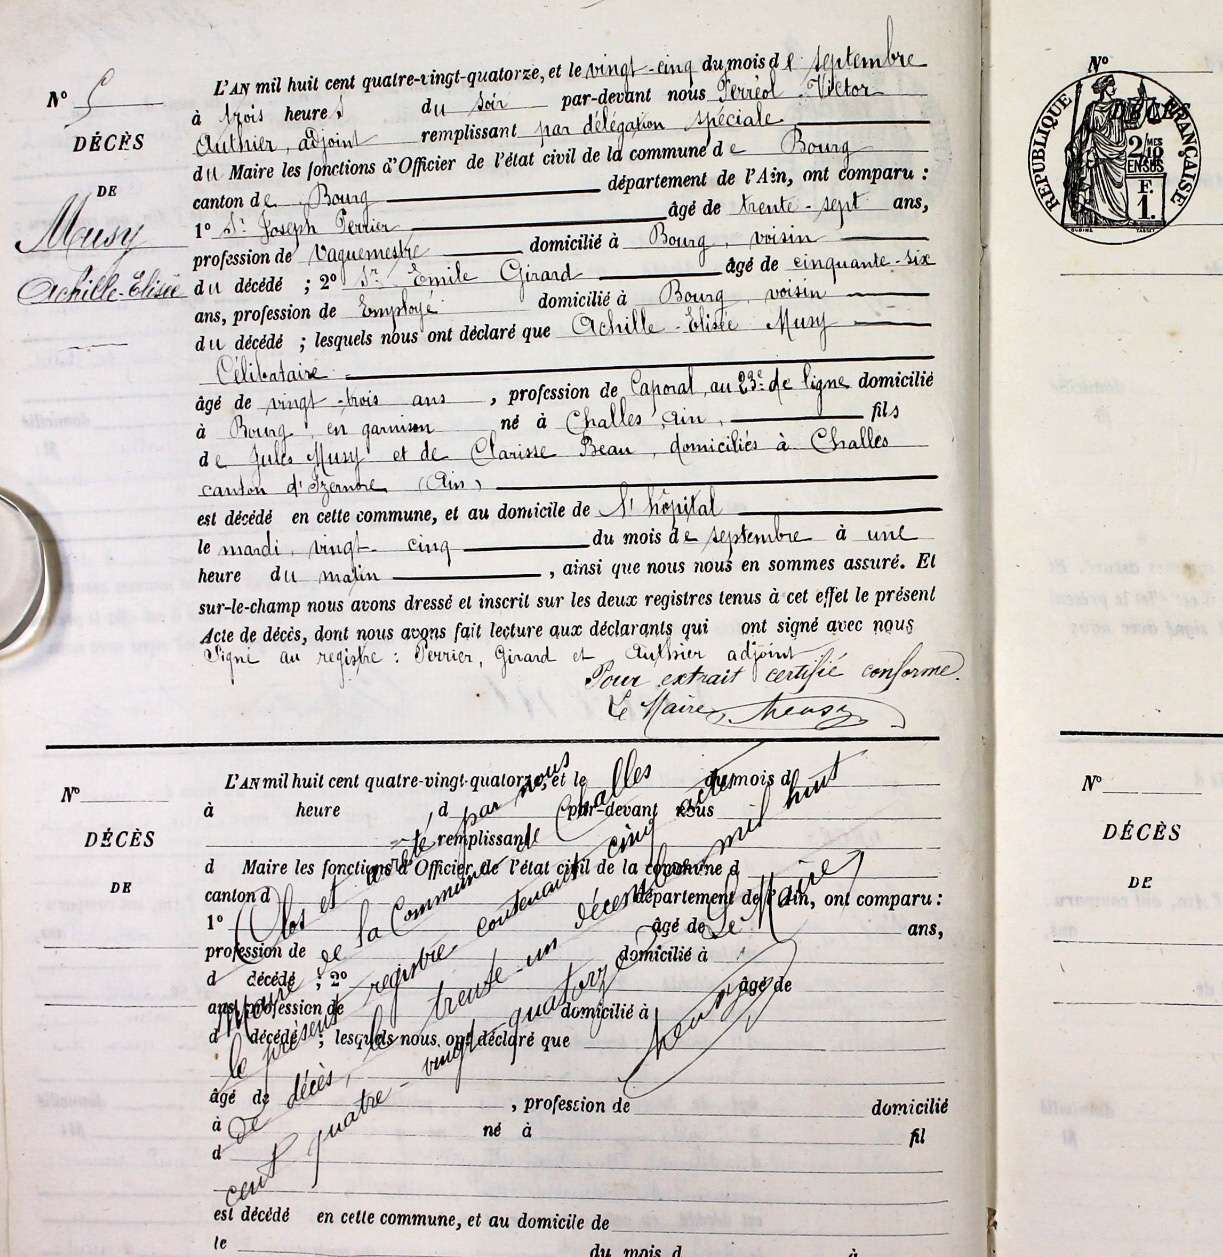 N° 5
DÉCÈS
DE
Musy
Achille-Elisée
L'AN mil huit cent quatre-vingt-quatorze, et le vingt-cinq du mois de septembre
à trois heures du soir par-devant nous Ferréol Victor
Authier, adjoint remplissant par délégation spéciale
du Maire les fonctions d'Officier de l'état civil de la commune de Bourg
canton de Bourg département de l'Ain, ont comparu :
1° Sr Joseph Perrier âgé de trente-sept ans,
profession de Vaguemestre domicilié à Bourg, voisin
du décédé ; 2° Sr Emile Girard âgé de cinquante-six
ans, profession de Employé domicilié à Bourg, voisin
du décédé ; lesquels nous ont déclaré que Achille-Elisée Musy
Célibataire
âgé de vingt-trois ans , profession de Caporal, au 23e de ligne domicilié
à Bourg, en garnison né à Challes, Ain, fils
de Jules Musy et de Clarisse Beau, domiciliés à Challes
canton d'Izernore (Ain)
est décédé en cette commune, et au domicile de l'hôpital
le mardi, vingt-cinq du mois de septembre à une
heure du matin , ainsi que nous nous en sommes assuré. Et
sur-le-champ nous avons dressé et inscrit sur les deux registres tenus à cet effet le présent
Acte de décès, dont nous avons fait lecture aux déclarants qui ont signé avec nous
Signé au registre : Perrier, Girard et Authier adjoint
Pour extrait certifié conforme.
Le Maire
N°
DÉCÈS
DE
L'AN mil huit cent quatre-vingt-quatorze, et le du mois d
à heure d par-devant nous
remplissant
d Maire les fonctions d'Officier de l'état civil de la commune d
canton d département de l'Ain, ont comparu :
1° âgé de ans,
profession de domicilié à
d décédé ; 2° âgé de
ans, profession de domicilié à
d décédé ; lesquels nous ont déclaré que
âgé de , profession de domicilié
à né à fil
d
est décédé en cette commune, et au domicile de
le du mois d à
Clos et arrêté par nous
Maire de la Commune de Challes
le présent registre contenant cinq actes
de décès, le trente-un décembre mil huit
cent quatre-vingt-quatorze.
Le Maire
N°
RÉPUBLIQUE FRANÇAISE
2/10MES
EN SUS
F.
1.
N°
DÉCÈS
DE